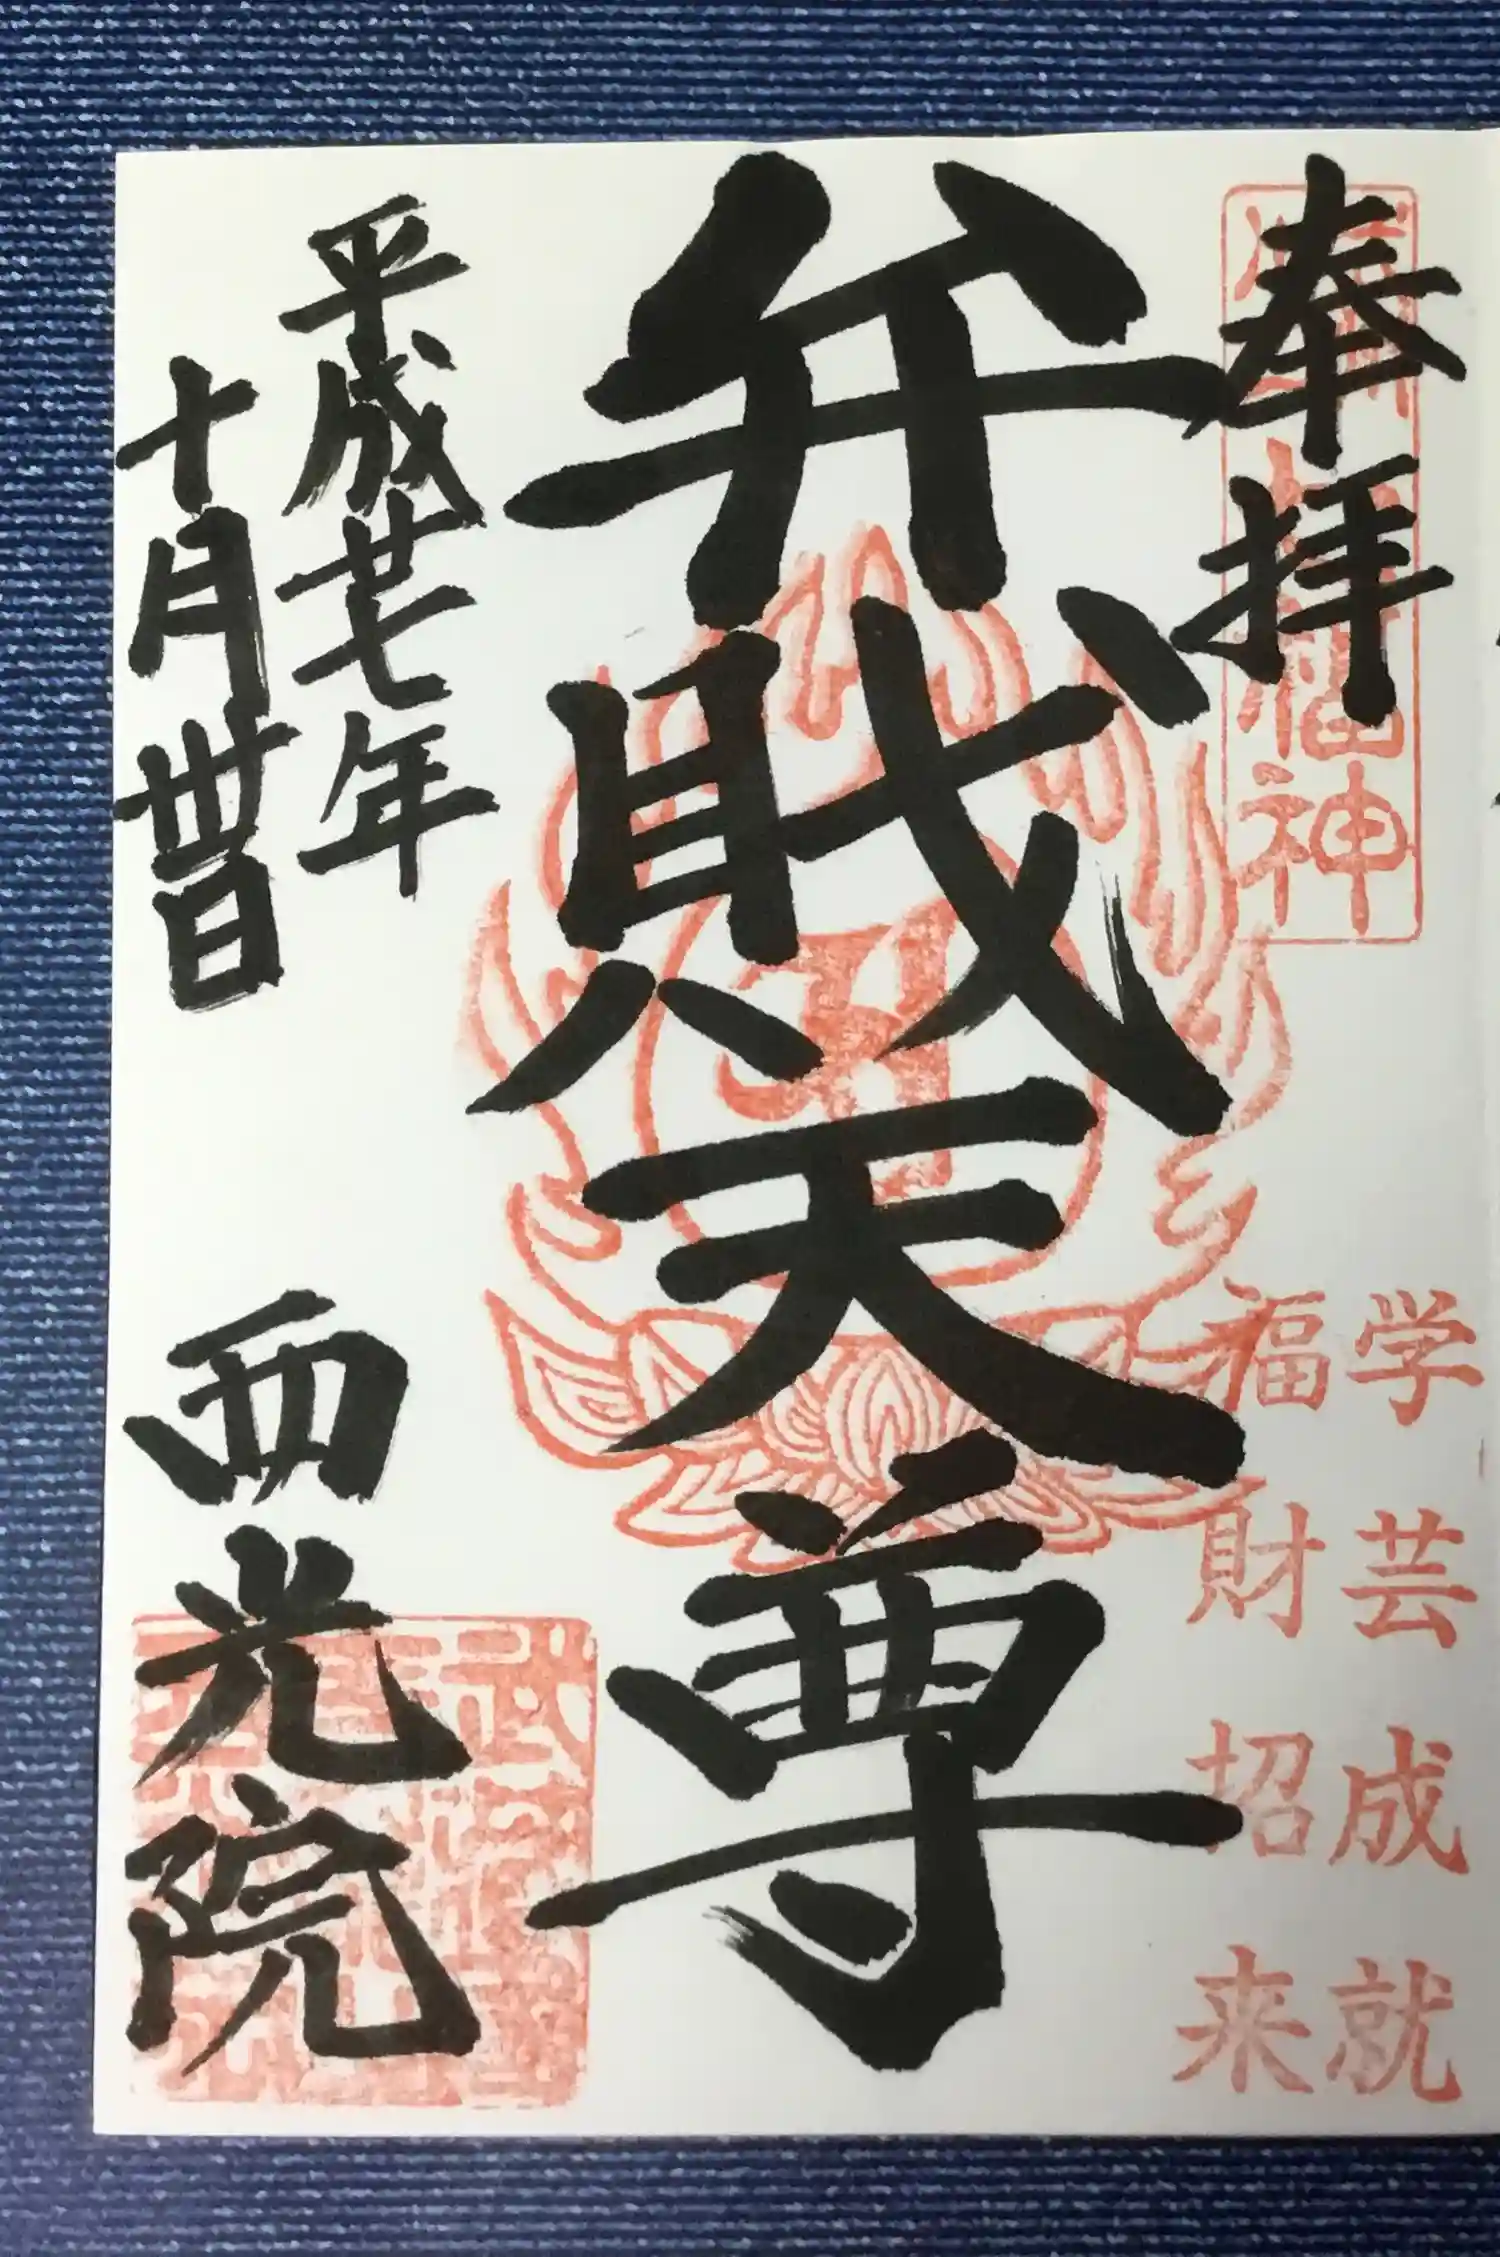 奉拝
福神
学芸成就
福財招来
弁戝天尊
平成廿七年
十月丗日
西光院